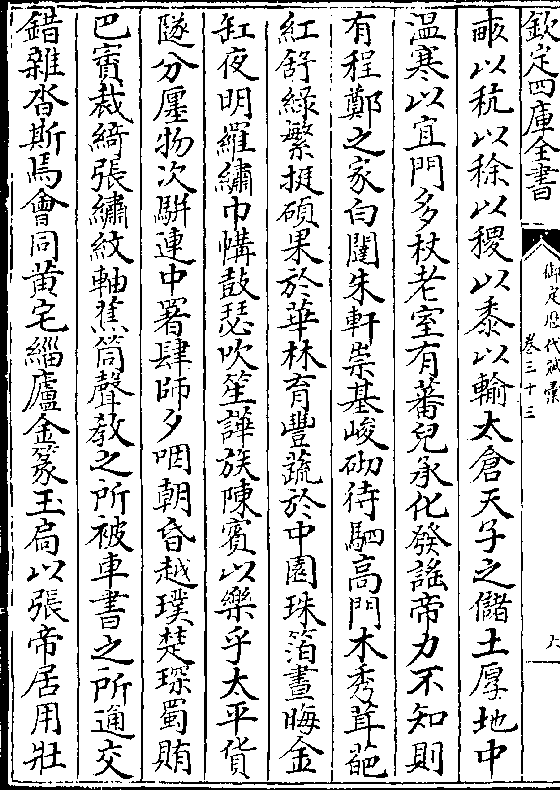 欽定四庫全書
御定歷代賦彙
卷三十三
畝以秔以稌以稷以黍以輸太倉天子之儲土厚地中
温寒以宜門多杖老室有蕃兒承化發謠帝力不知則
有程鄭之家白閨朱軒崇基峻砌待駟高門木秀茸葩
紅舒緑繁挺碩果於華林育豐蔬於中園珠箔晝晦金
缸夜明羅繡巾幬鼓瑟吹笙譁族陳賓以樂乎太平貨
隧分廛物次駢連中署肆師夕咽朝昏越璞楚琛蜀賄
巴賨裁綺張繡紋軸蕉筒聲教之所被車書之所通交
錯雜沓斯焉會同黄宅緇廬金篆玉扃以張帝居用壯